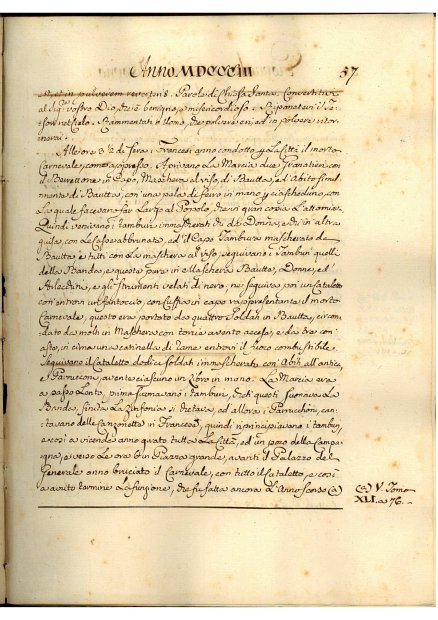 Anno MDCCCIII
57
et in pulverem reverteris. Parole di Chiesa Santa. Convertitevi
al Sigr. vostro Dio, che è benigno, e misericordioso. Preparatevi il Te-
soro nel Cielo. Rammentati o Uomo, che polvere sei, ed in polvere ritor-
nerai.
Alle ore 3½ di sera i Francesi anno condotto p. la Città il morto
Carnevale, come appresso. Aprivano la Marcia due Granatieri con
il Berrettone in Capo, Maschera al viso, di Bautta, ed Abito simil-
mente di Bautta, con una pala di ferro in mano p. ciascheduno, con
la quale facevan far largo al Popolo, che in gran copia l'attorniava.
Quindi venivano i tamburi immascherati chi da Donna, e chi in altra
guisa, con le Casse abbrunate, ed il Capo Tamburo mascherato da
Bautta e tutti con la maschera al viso, seguivano i Tamburi quelli
della Banda, e questi pure in Maschera Bautta, Donne, ed
Arlecchini, e gli strumenti velati di nero, ne seguiva poi un Cataletto
con entro un fantoccio, con Cuffia in capo rappresentante il morto
Carnevale, questo era portato da quattro Soldati in Bautta, circon-
dato da molti in Maschera con torcie a vento accese, e da tre can-
to, in cima una catinella di rame entrovi il fuoco combustibile
Seguivano il Cataletto dodici soldati immascherati con Abiti all'antica,
e Parrucconi, avente ciascuno un Libro in mano. La Marcia era
a passo lento, prima suonavano i tamburi, doppo questi suonava la
Banda, finita la Zinfonia si chetava, ed allora i Parrucconi, can-
tavano delle Canzonette in Francese, quindi rincipiavano i tamburi,
e così a vicenda anno girato tutta la Città, ed un poco della Campa-
gna, e verso le ore 6 in Piazza grande, avanti il Palazzo del
Generale anno bruciato il Carnevale, con tutto il Cataletto, e così
a avuto termine la funzione, che fu fatta ancora l'Anno scorso (a)
(a) V. Tomo
XLI. a 76.